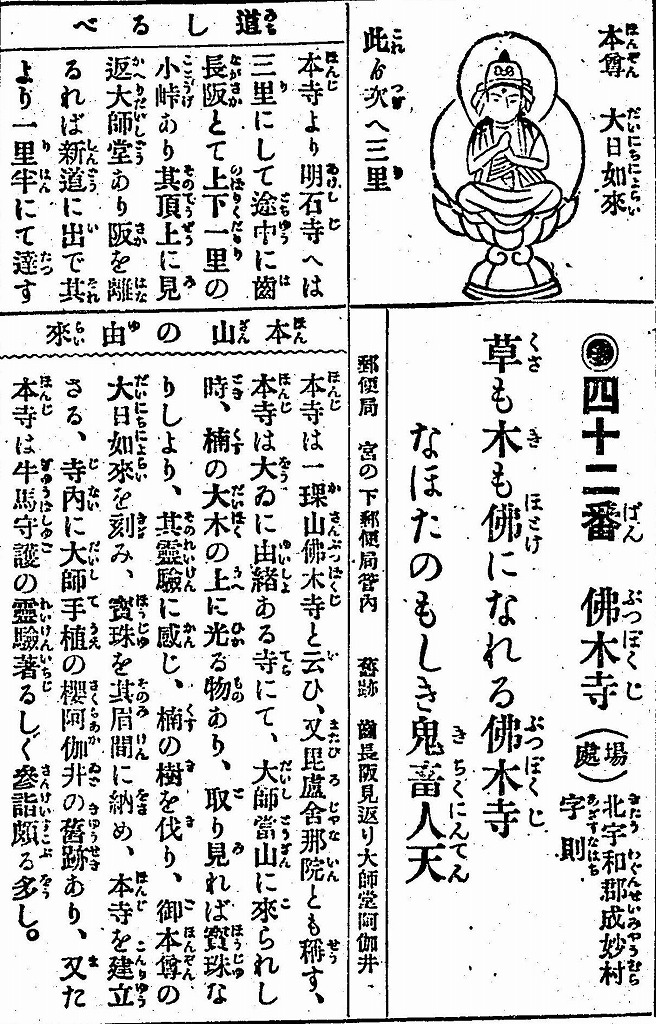 本尊 大日如來
此ゟ次へ三里
四十二番 佛木寺 (場處) 北宇和郡成妙村字則
草も木も佛になれる佛木寺
なほたのもしき鬼畜人天
郵便局 宮の下郵便局管內 舊跡 齒長阪見返り大師堂阿伽井
道しるべ
本寺より明石寺へは
三里にして途中に齒
長阪とて上下一里の
小峠あり其頂上に見
返大師堂あり阪を離
るれば新道に出で其
より一里半にて達す
本山の由來
本寺は一𤩍山佛木寺と云ひ、又毘盧舍那院とも稱す、
本寺は大ゐに由緖ある寺にて、大師當山に來られし
時、楠の大木の上に光る物あり、取り見れば寶珠な
りしより、其靈驗に感じ、楠の樹を伐り、御本尊の
大日如來を刻み、寶珠を其眉間に納め、本寺を建立
さる、寺內に大師手植の櫻阿伽井の舊跡あり、又た
本寺は牛馬守護の靈驗著るしく參詣頗る多し。